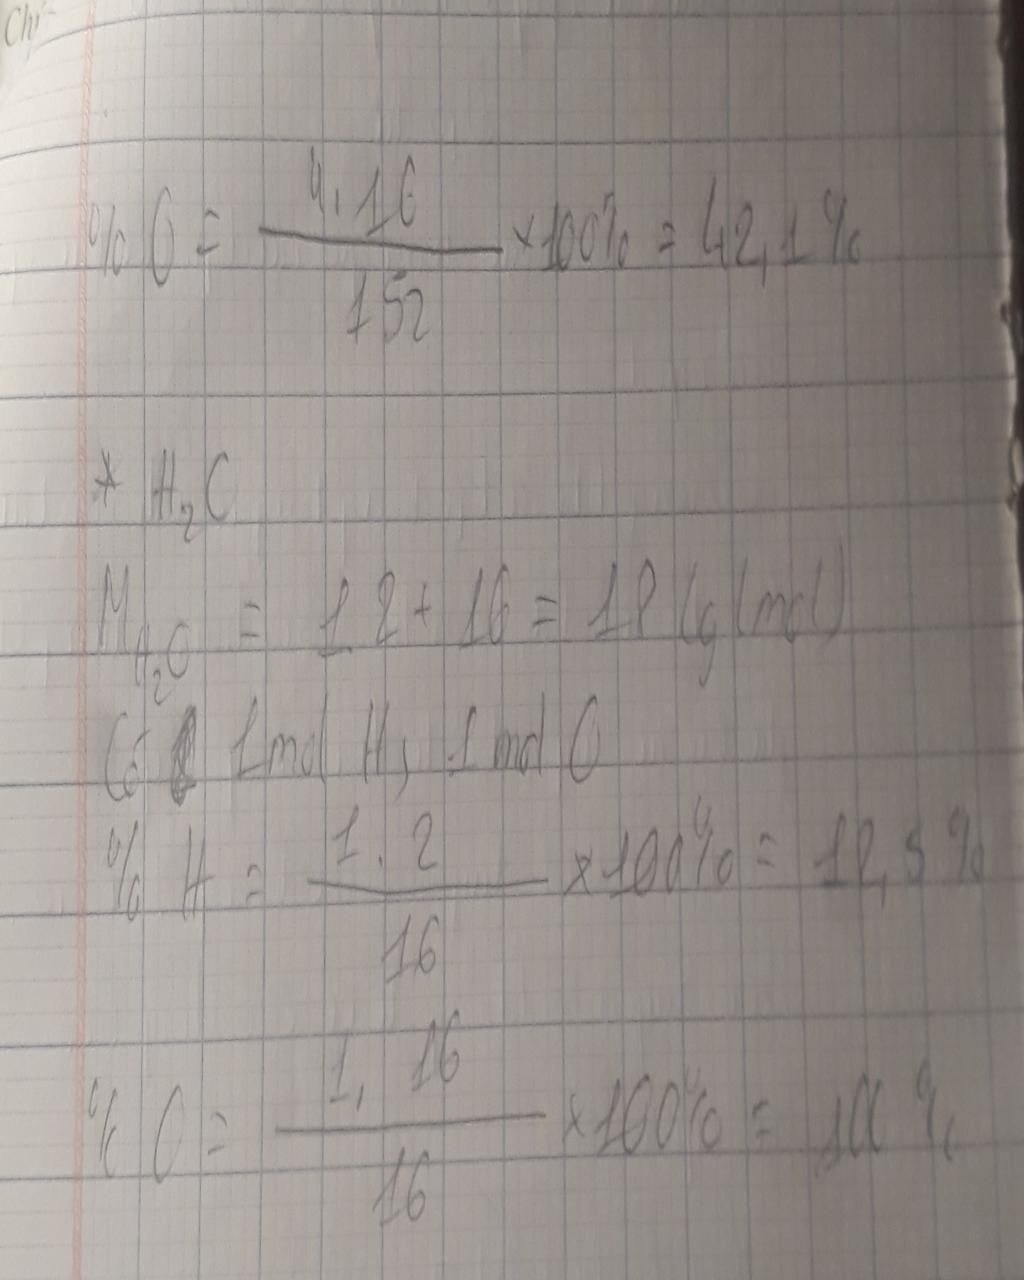 Chi
% O = 4.16 / 152 × 100% = 42,1%
* H₂O
M H₂O = 1.2 + 16 = 18 (g/mol)
Có 1 mol H, 1 mol O
% H = 1.2 / 16 × 100% = 12,5%
% O = 1.16 / 16 × 100% = 100%